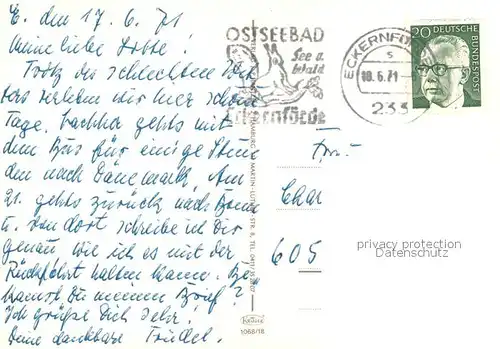 E. den 17. 6. 71
Meine liebe Lotte!
Trotz des schlechten
verleben wir hier schöne
Tage. Nachher gehts mit
dem Bus für einige Stun
den nach Dänemark. Am
21. gehts zurück nach Bonn
u. von dort schreibe ich Dir
genau wie ich es mit der
Rückfahrt halten kann. Be
kamst Du meinen Brief?
Ich grüße Dich sehr!
Deine dankbare Trudel.
OSTSEEBAD
See u.
Wald
Eckernförde
ECKERNFÖ
s
18.6.71
233
20 DEUTSCHE
BUNDESPOST
Frau
Char
605
KRÜGER
1068/18
privacy protection
Datenschutz